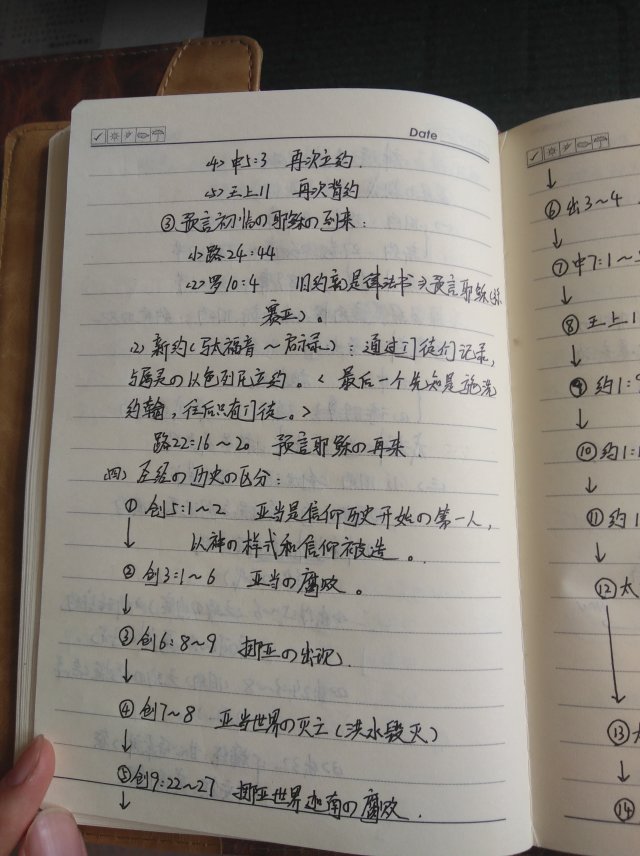 Date
(4) 申5:3 再次立约.
(5) 王上11 再次背约
③ 预言初临の耶稣の到来:
(1) 路24:44
(2) 罗10:4 旧约就是律法书→预言耶稣(弥
赛亚)。
(2) 新约(马太福音～启示录): 通过门徒们记录,
与属灵の以色列民立约。< 最后一个先知是施洗
约翰, 往后只有门徒。>
路22:16～20 预言耶稣の再来.
四) 圣经の历史の区分:
① 创5:1～2 亚当是信仰历史开始の第一人,
以神の样式和信仰被造。
↓
② 创3:1～6 亚当の腐败。
↓
③ 创6:8～9 挪亚の出现.
↓
④ 创7～8 亚当世界の灭亡(洪水毁灭)
↓
⑤ 创9:22～27 挪亚世界迦南の腐败.
↓
↓
⑥ 出3～4
↓
⑦ 申7:1～
↓
⑧ 王上1
↓
⑨ 约1:9
↓
⑩ 约1:1
↓
⑪ 约1
↓
⑫ 太
↓
⑬
↓
⑭